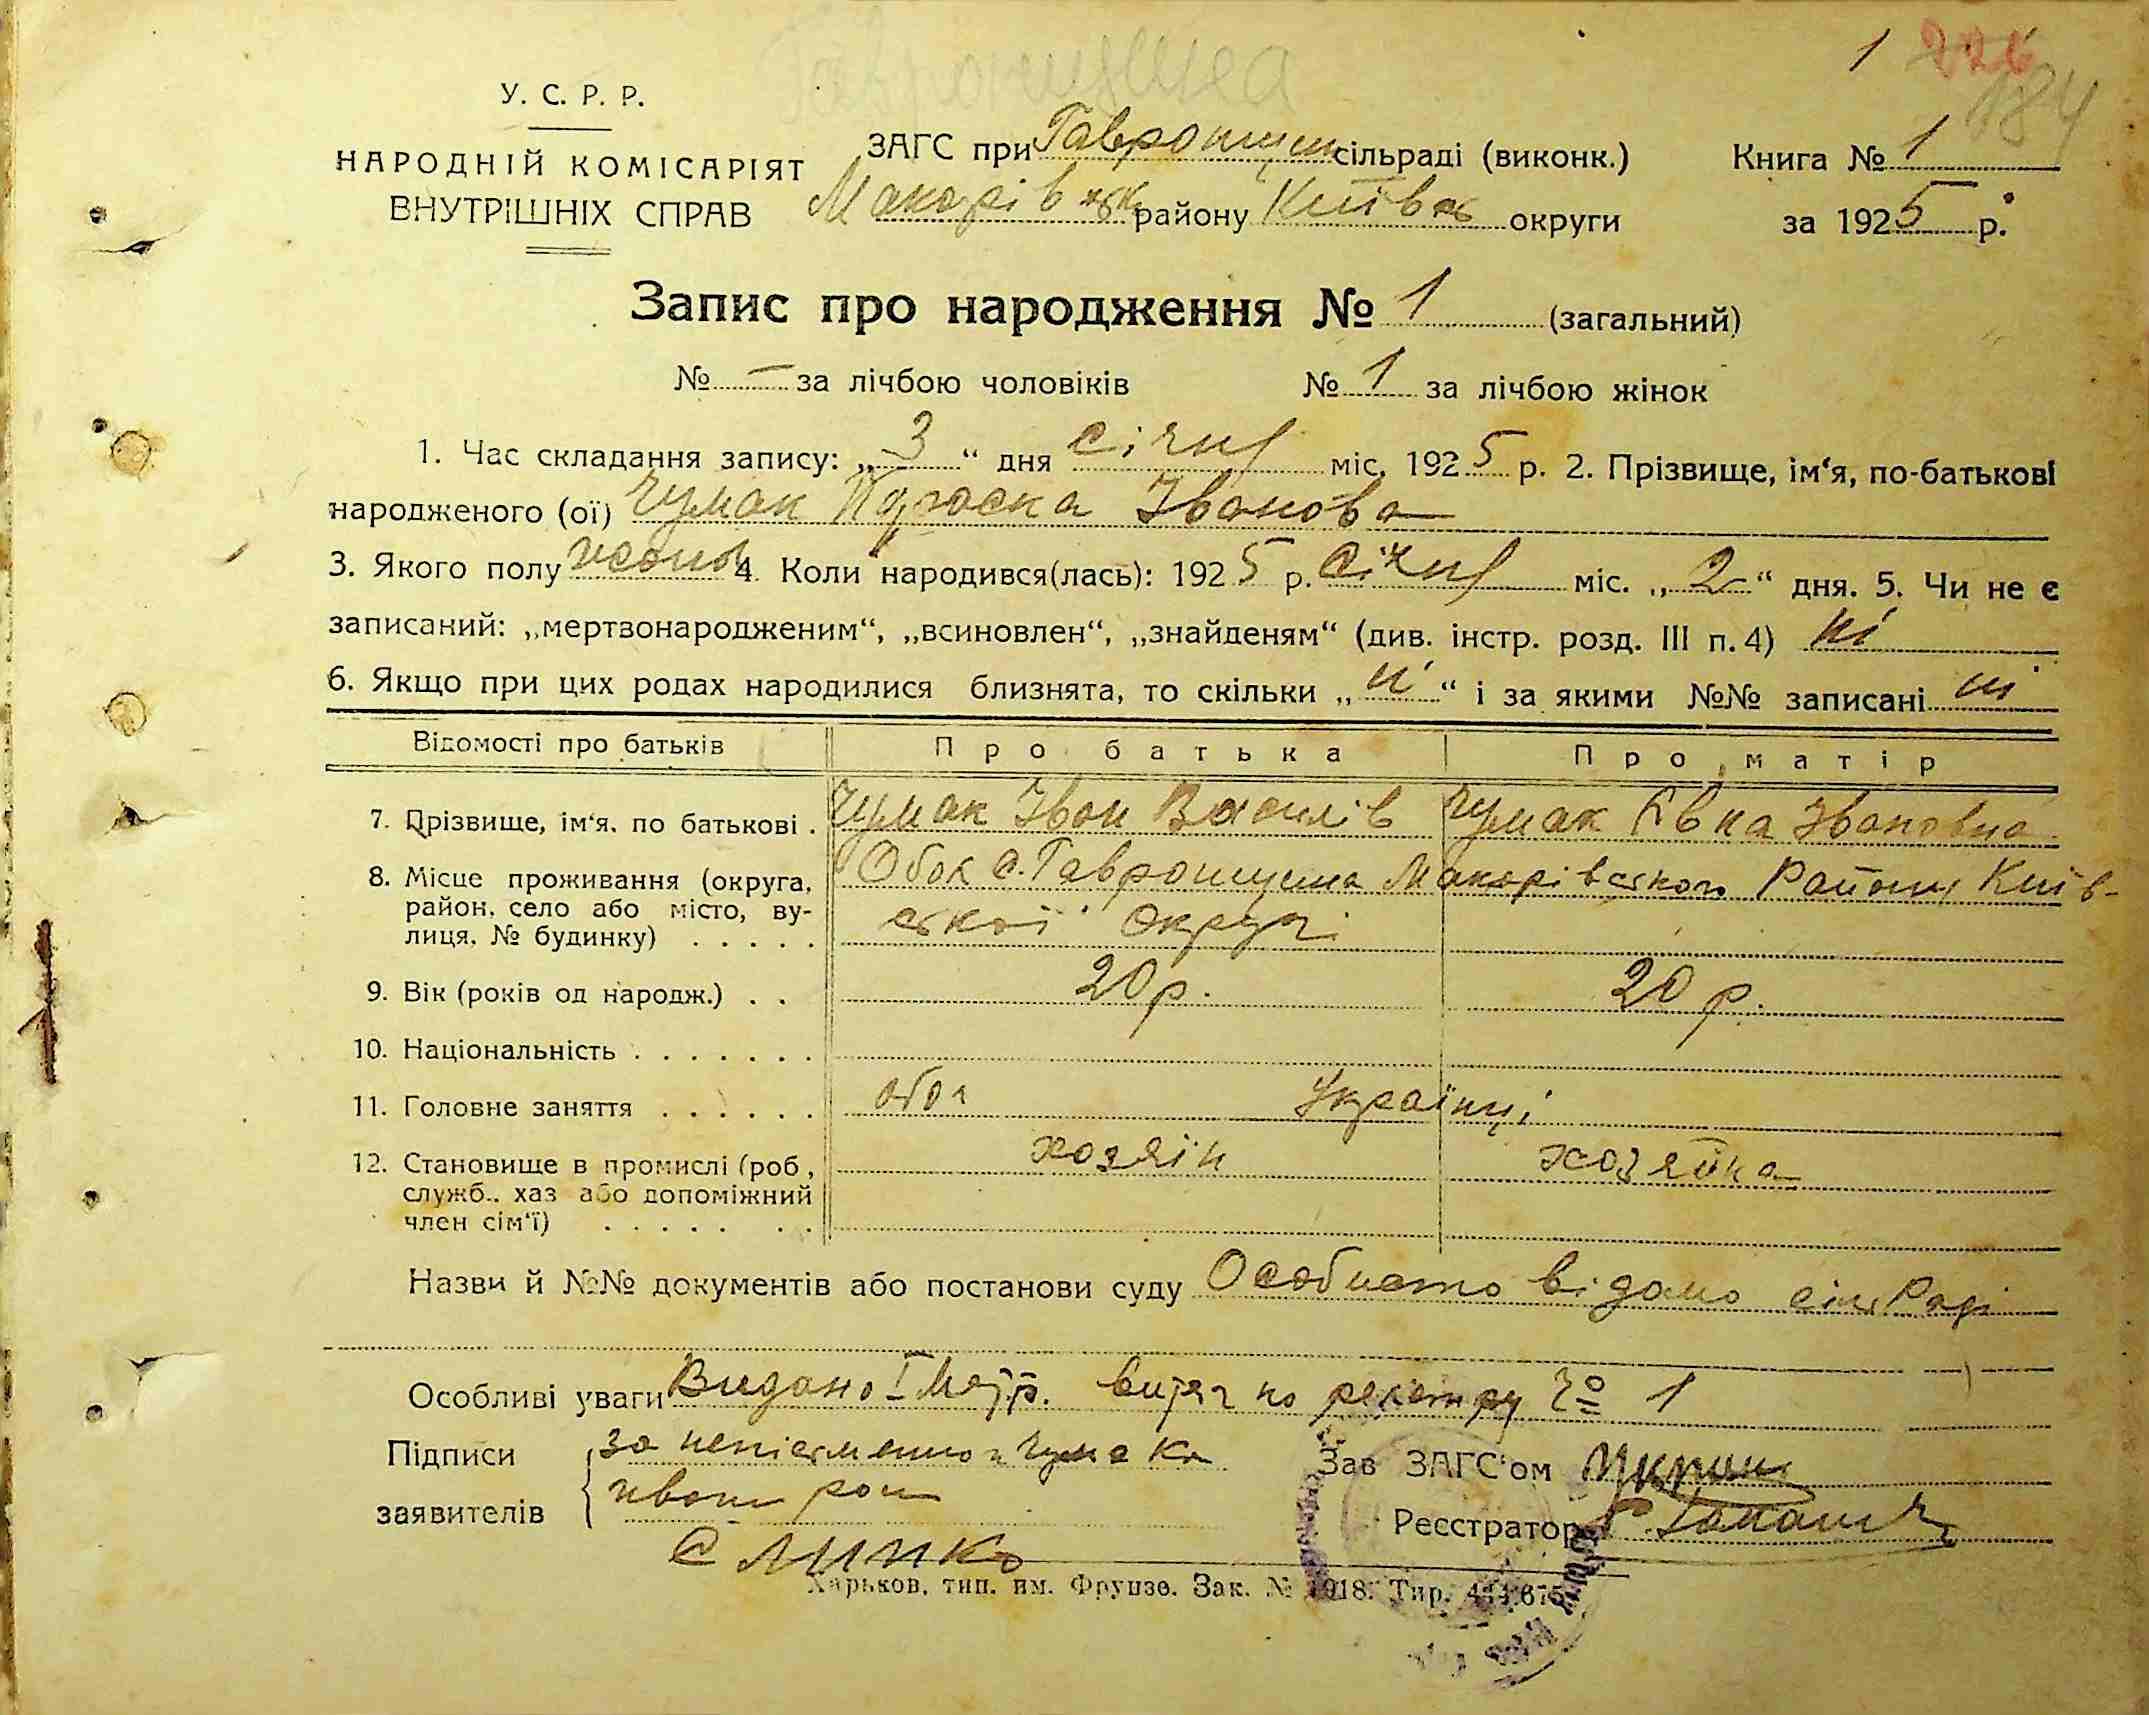 Гавронщина
1 226
184
У. С. Р. Р.
НАРОДНІЙ КОМІСАРІЯТ
ВНУТРІШНІХ СПРАВ
ЗАГС при Гавронщин сільраді (виконк.) Книга № 1
Макарівськ району Київськ округи за 1925 р.
Запис про народження № 1 (загальний)
№ — за лічбою чоловіків № 1 за лічбою жінок
1. Час складання запису: „3“ дня січня міс. 1925 р. 2. Прізвище, ім‘я, по-батькові
народженого (ої) Чумак Іванова
3. Якого полу жіноч 4. Коли народився(лась): 1925 р. Січня міс. „2“ дня. 5. Чи не є
записаний: „мертвонародженим“, „всиновлен“, „знайденям“ (див. інстр. розд. III п. 4) ні
6. Якщо при цих родах народилися близнята, то скільки „ні“ і за якими №№ записані ні
Відомості про батьків Про батька Про матір
7. Прізвище, ім‘я, по батькові . Чумак Іван Василів Чумак Івановна
8. Місце проживання (округа, Обоє с. Гавронщина Макарівського Району Київ-
район, село або місто, ву- ської Округи
лиця, № будинку) . . . . .
9. Вік (років од народж.) . . 20 р. 20 р.
10. Національність . . . . . . .
11. Головне заняття . . . . . . обоє Українці
12. Становище в промислі (роб, хозяїн хозяйка
служб., хаз або допоміжний
член сім‘ї) . . . . . . .
Назви й №№ документів або постанови суду Особисто відомо сіл Раді
Особливі уваги Видано витяг по реєстру № 1
Підписи за неписьменного Чумака Зав ЗАГС‘ом
заявителів Івана Реєстратор
Харьков, тип. им. Фрунзе. Зак. № 1918. Тир. 444.675